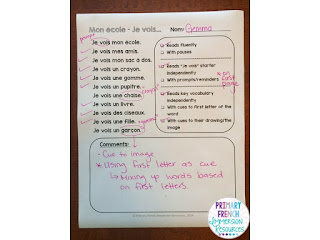 Mon école - Je vois... Nom: Gemma
Je vois mon école.
Je vois mes amis.
Je vois mon sac à dos.
Je vois un crayon.
Je vois une gomme.
Je vois un pupitre.
Je vois une chaise.
Je vois un livre.
Je vois des ciseaux.
Je vois une fille.
Je vois un garçon.
Reads fluently
With pauses
Reads "Je vois" starter
independently
With prompts/reminders
on first page
Reads key vocabulary
independently
With cues to first letter of the
word
With cues to their drawing/the
image
Comments:
- Cue to image
* Using first letter as cue
↳ Mixing up words based
on first letters.
PRIMARY
FRENCH
IMMERSION
RESOURCES